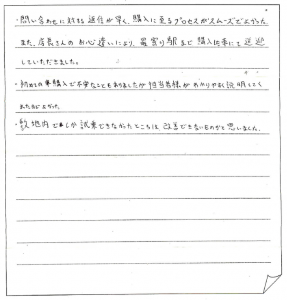 ・問い合わせに対する返信が早く、購入に至るプロセスがスムーズでよかった
また、店長さんのお心遣いにより、最寄り駅まで購入後にも送迎
していただきました。
・初めての車購入で不安なこともありましたが担当者様がわかりやすく説明してく
れたのでよかった。
・敷地内でしか試乗できなかったところは、改善できないものかと思いました。